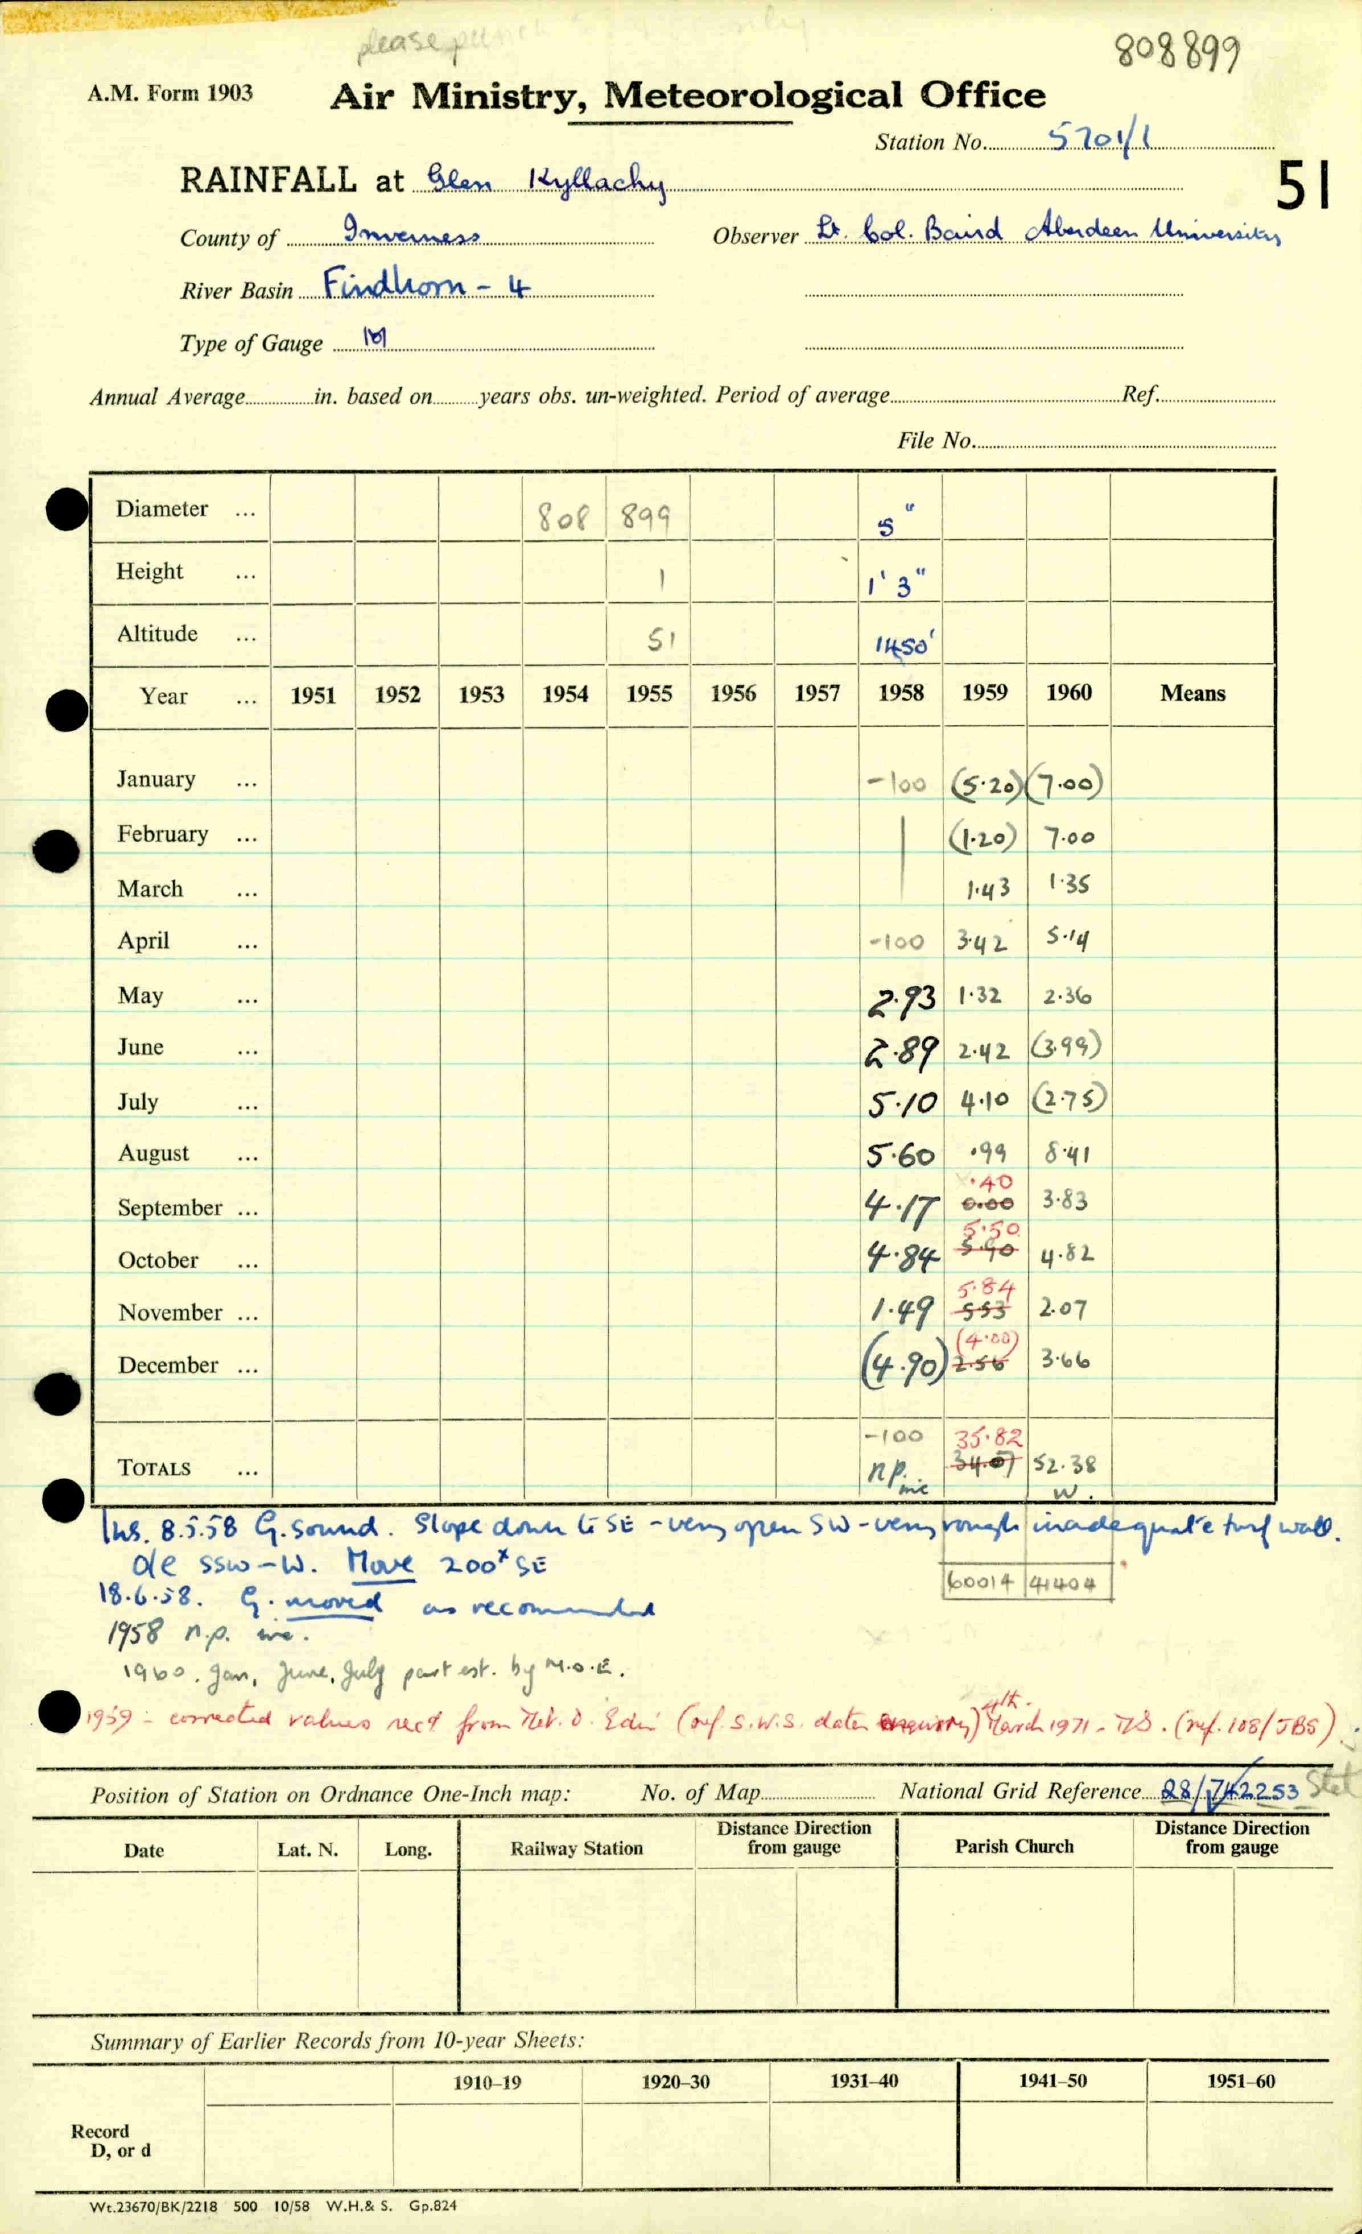 please punch
808899
A.M. Form 1903 Air Ministry, Meteorological Office
Station No. 5701/1
RAINFALL at Glen Kyllachy 51
County of Inverness Observer Lt. Col. Baird Aberdeen University
River Basin Findhorn - 4
Type of Gauge M
Annual Average in. based on years obs. un-weighted. Period of average Ref.
File No.
Diameter ... 808 899 5"
Height ... 1 1' 3"
Altitude ... 51 1450'
Year ... 1951 1952 1953 1954 1955 1956 1957 1958 1959 1960 Means
January ... -100 (5.20) (7.00)
February ... (1.20) 7.00
March ... 1.43 1.35
April ... -100 3.42 5.14
May ... 2.93 1.32 2.36
June ... 2.89 2.42 (3.99)
July ... 5.10 4.10 (2.75)
August ... 5.60 .99 8.41
.40
September ... 4.17 0.00 3.83
5.50
October ... 4.84 5.90 4.82
5.84
November ... 1.49 5.53 2.07
(4.00)
December ... (4.90) 2.56 3.66
-100 35.82
TOTALS ... n.p. inc 34.07 52.38
W.
Ins. 8.5.58 G. sound. Slope down to SE - very open SW - very rough inadequate turf wall.
o/e SSW - W. Move 200x SE
60014 41404
18.6.58. G. moved as recommended
1958 n.p. inc.
1960. Jan, June, July part est. by M.O.E.
1959 - corrected values rec'd from Met. O. Edin (ref. S.W.S. data enquiry) 4th March 1971 - (ref. 108/JBS)
Position of Station on Ordnance One-Inch map: No. of Map National Grid Reference 28/742253 Stet
Date Lat. N. Long. Railway Station Distance Direction from gauge Parish Church Distance Direction from gauge
Summary of Earlier Records from 10-year Sheets:
1910–19 1920–30 1931–40 1941–50 1951–60
Record
D, or d
Wt.23670/BK/2218 500 10/58 W.H.& S. Gp.824